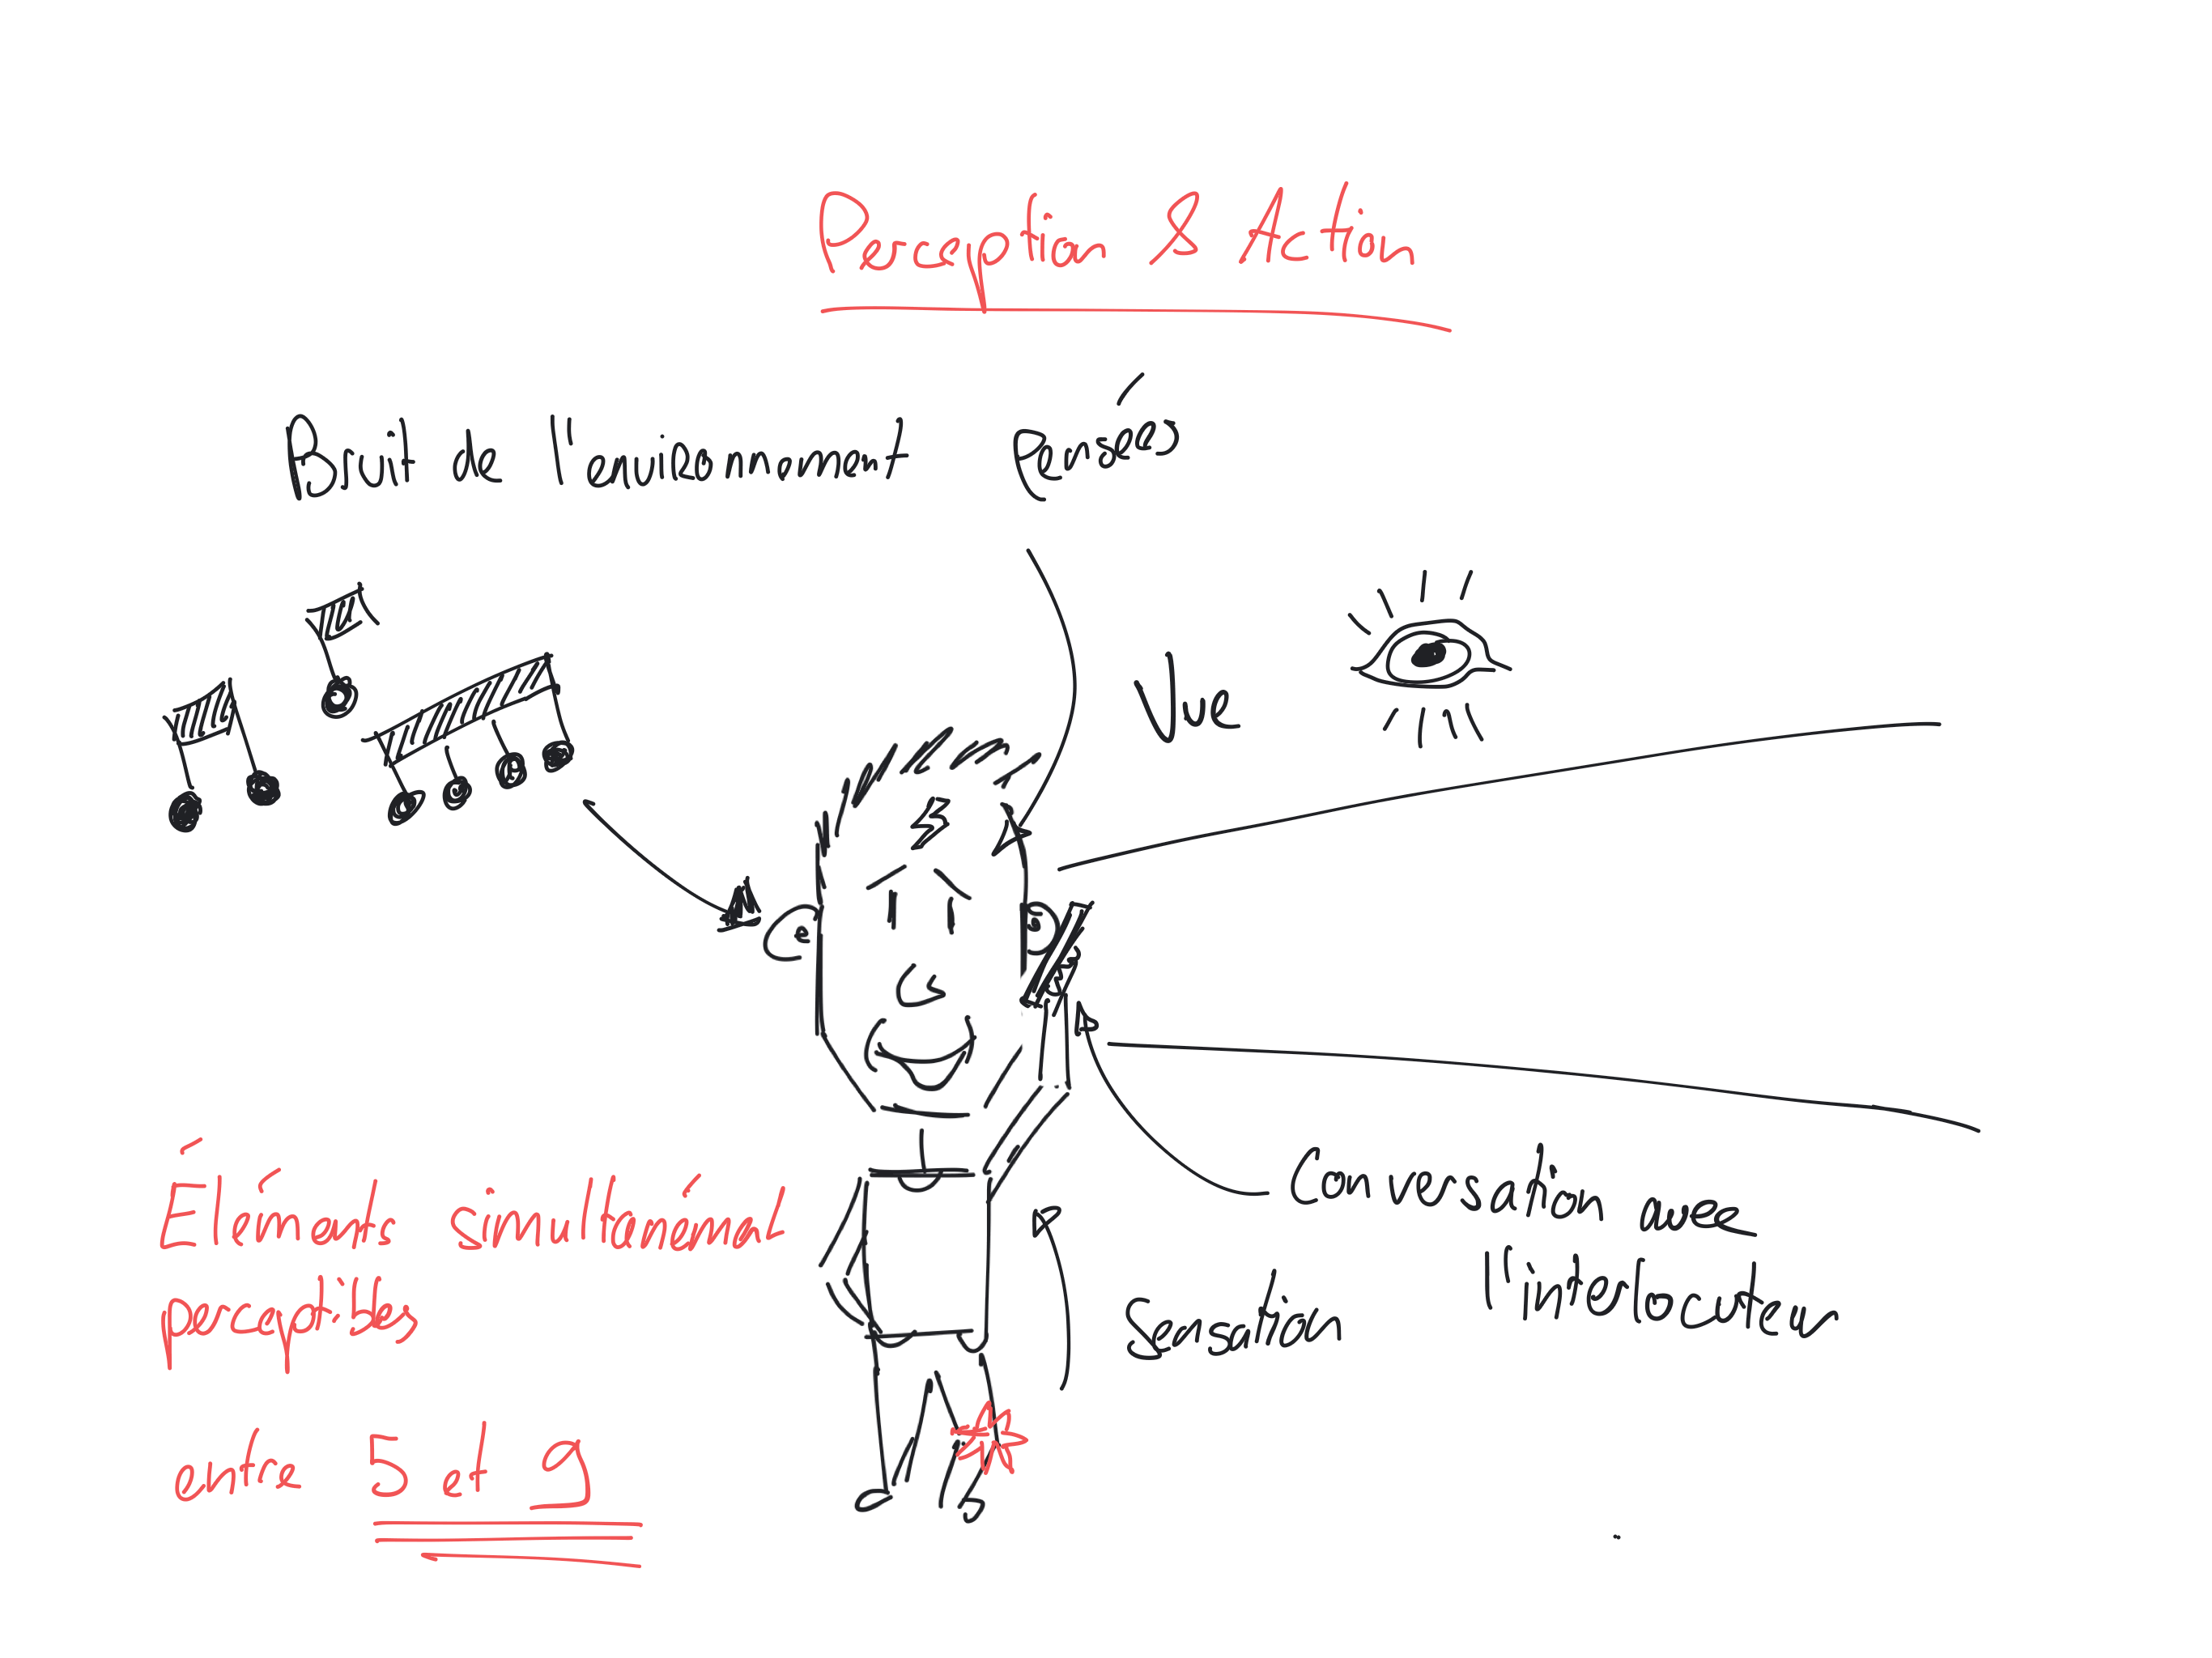 Perception & Action
Bruit de l'environnement
Pensées
Vue
Conversation avec
l'interlocuteur
Sensation
Éléments simultanément
perceptibles
entre 5 et 9